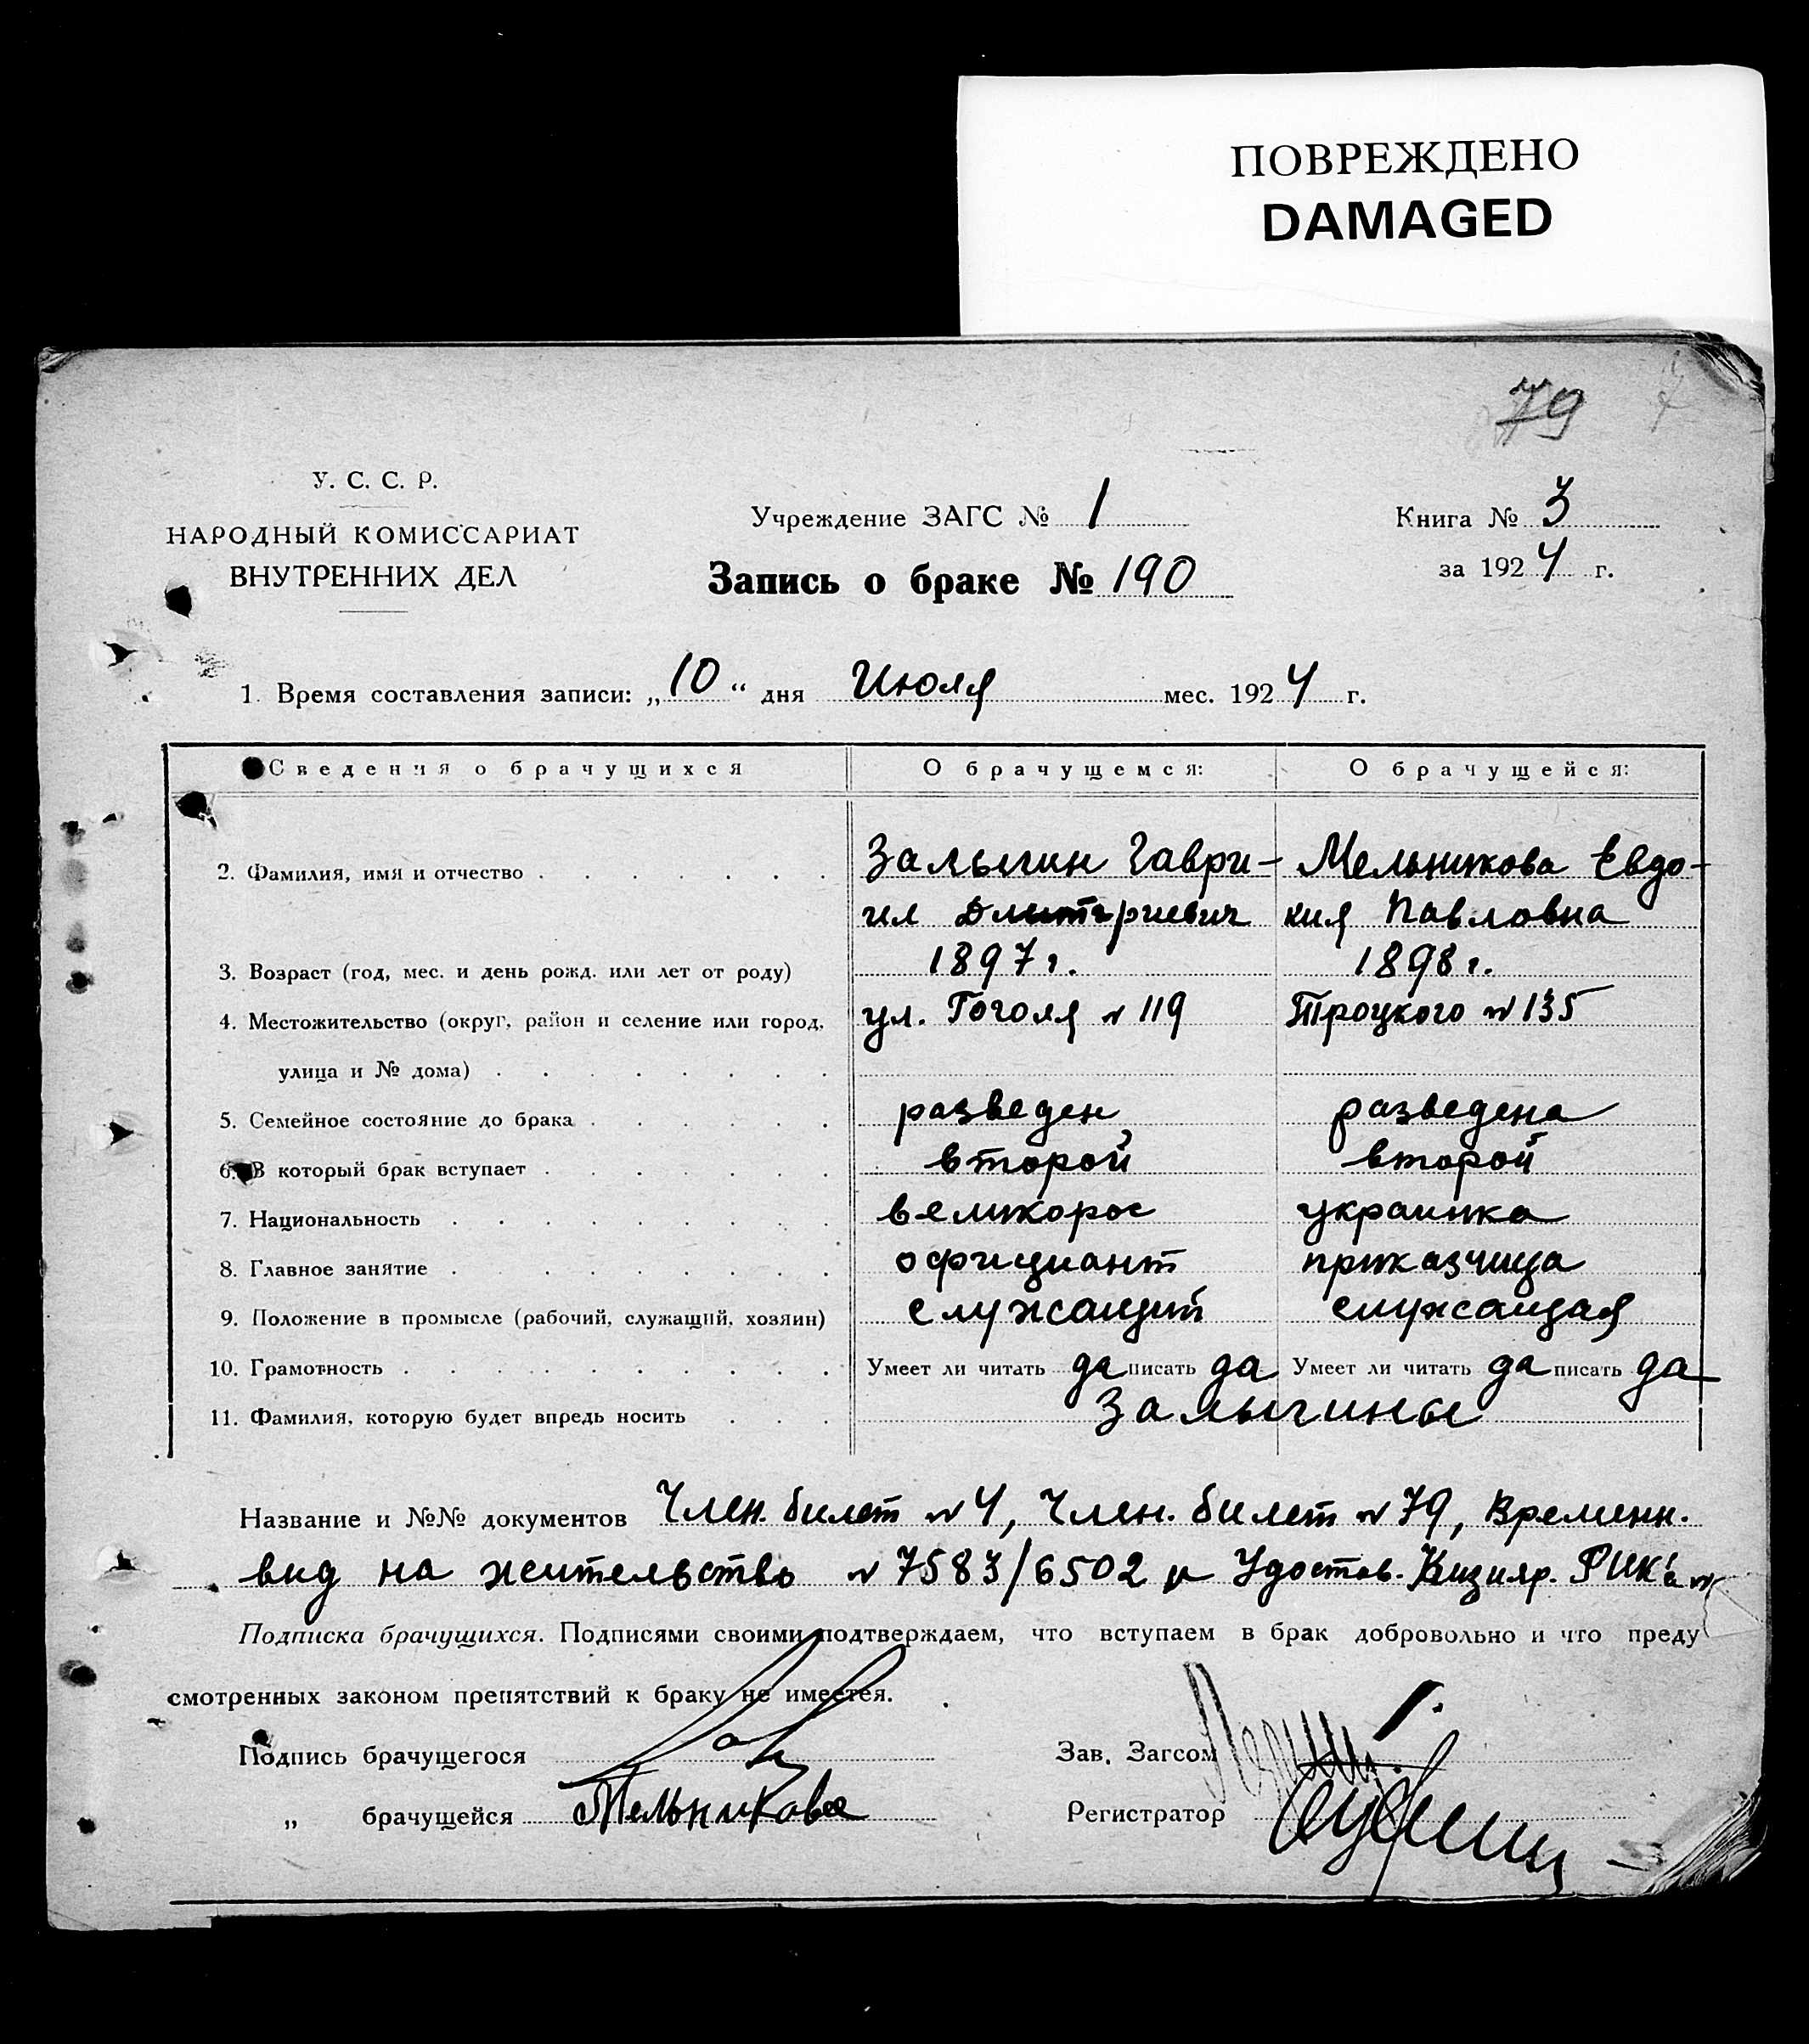 ПОВРЕЖДЕНО
DAMAGED
79 7
У. С. С. Р.
НАРОДНЫЙ КОМИССАРИАТ
ВНУТРЕННИХ ДЕЛ
Учреждение ЗАГС № 1
Запись о браке № 190
Книга № 3
за 1924 г.
1. Время составления записи: „10“ дня Июля мес. 1924 г.
Сведения о брачущихся О брачущемся: О брачущейся:
2. Фамилия, имя и отчество Залыгин Гаври- Мельникова Евдо-
ил Дмитриевич кия Павловна
3. Возраст (год, мес. и день рожд. или лет от роду) 1897 г. 1898 г.
4. Местожительство (округ, район и селение или город, ул. Гоголя № 119 Троцкого № 135
улица и № дома)
5. Семейное состояние до брака разведен разведена
6. В который брак вступает второй второй
7. Национальность великорос украинка
8. Главное занятие официант приказчица
9. Положение в промысле (рабочий, служащий, хозяин) служащий служащая
10. Грамотность Умеет ли читать да писать да Умеет ли читать да писать да
11. Фамилия, которую будет впредь носить Залыгины
Название и №№ документов Член. билет № 4, Член. билет № 79, Временн.
вид на жительство № 7583/6502 и Удостов. Кизияр. РИК'а №
Подписка брачущихся. Подписями своими подтверждаем, что вступаем в брак добровольно и что преду
смотренных законом препятствий к браку не имеется.
Подпись брачущегося Зав. Загсом
„ брачущейся Мельникова Регистратор